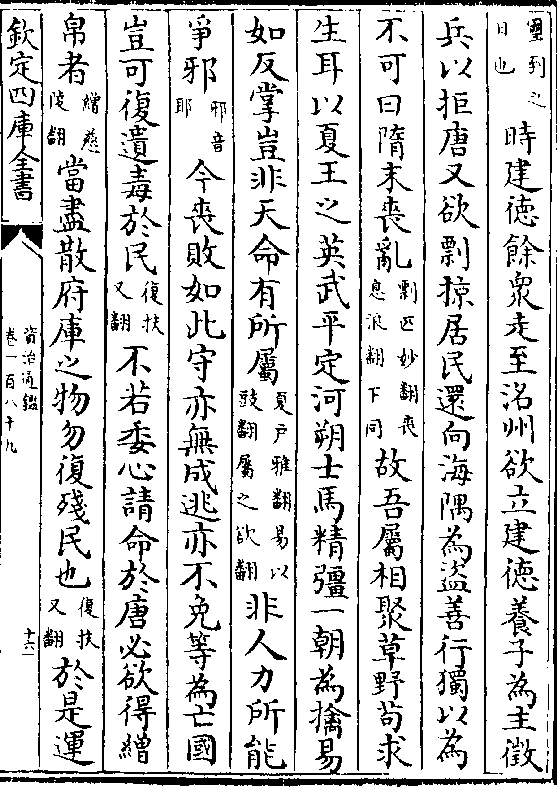 璽到之日也時建徳餘衆走至洺州欲立建徳養子為主徴
兵以拒唐又欲剽掠居民還向海隅為盗善行獨以為
不可曰隋末喪亂剽匹妙翻喪息浪翻下同故吾屬相聚草野苟求
生耳以夏王之英武平定河朔士馬精彊一朝為擒易
如反掌豈非天命有所屬夏戸雅翻易以豉翻屬之欲翻非人力所能
爭邪邪音耶今喪敗如此守亦無成逃亦不免等為亡國
豈可復遺毒於民復扶又翻不若委心請命於唐必欲得繒
帛者繒慈陵翻當盡散府庫之物勿復殘民也復扶又翻於是運
欽定四庫全書
資治通鑑
卷一百八十九
十六